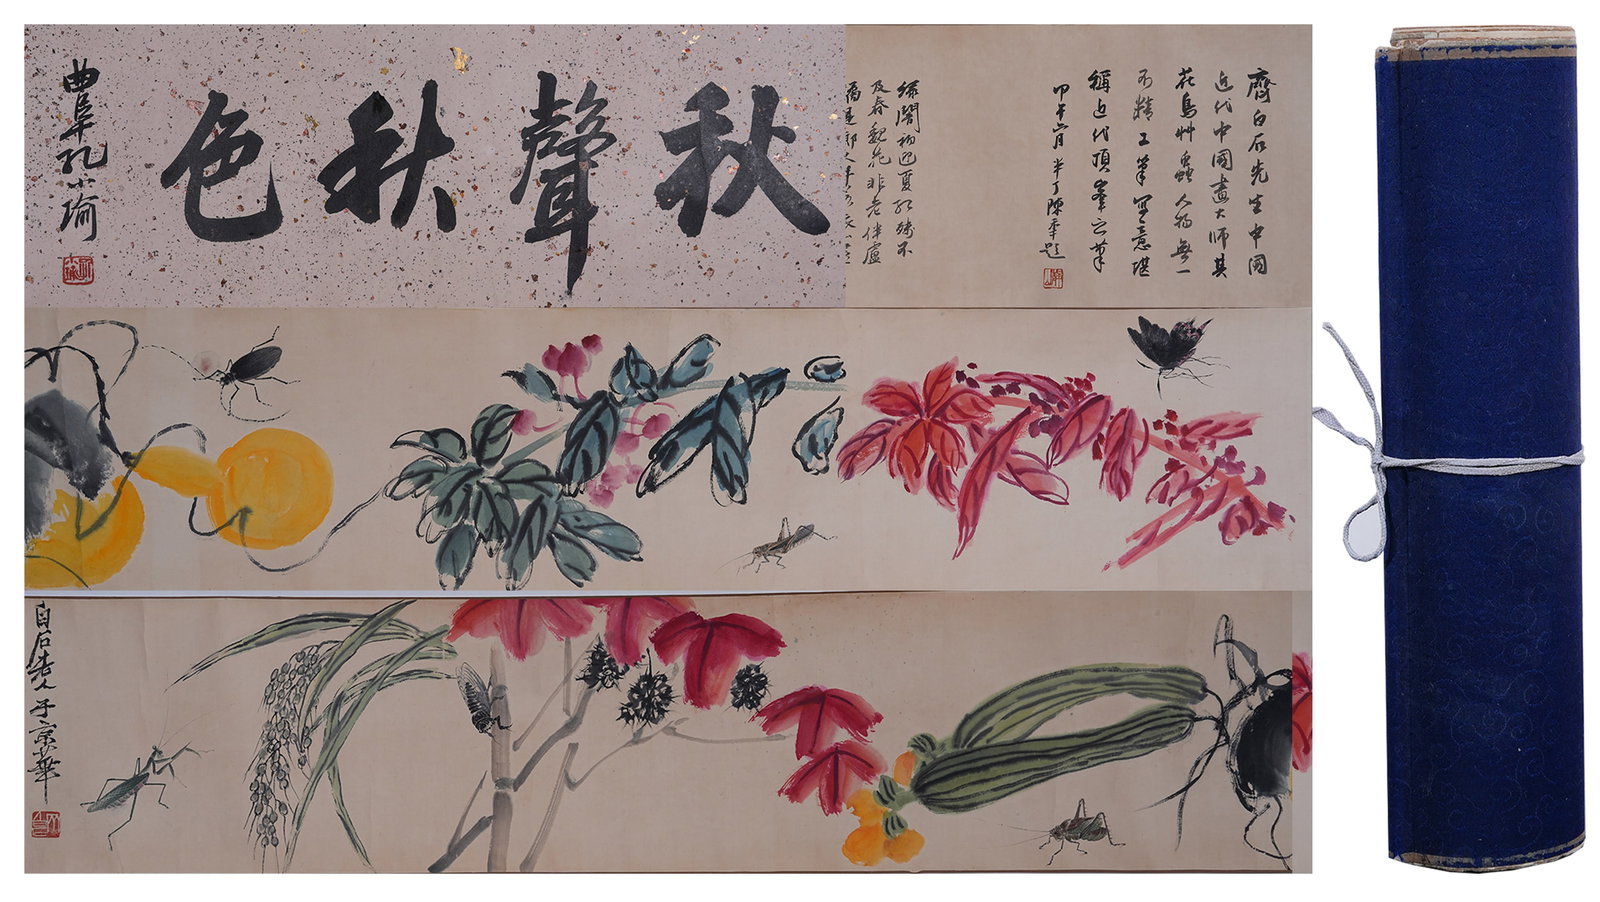 秋聲秋色
曲阜孔小瑜
齊白石先生中国
近代中國畫大師其
花鳥艸蟲人物無一
不精工筆寫意堪
稱近代頂峯之筆
甲午六月半丁陳年題
綠闇初迎夏紅殘不
及春魏花非老伴盧
白石老人于京華